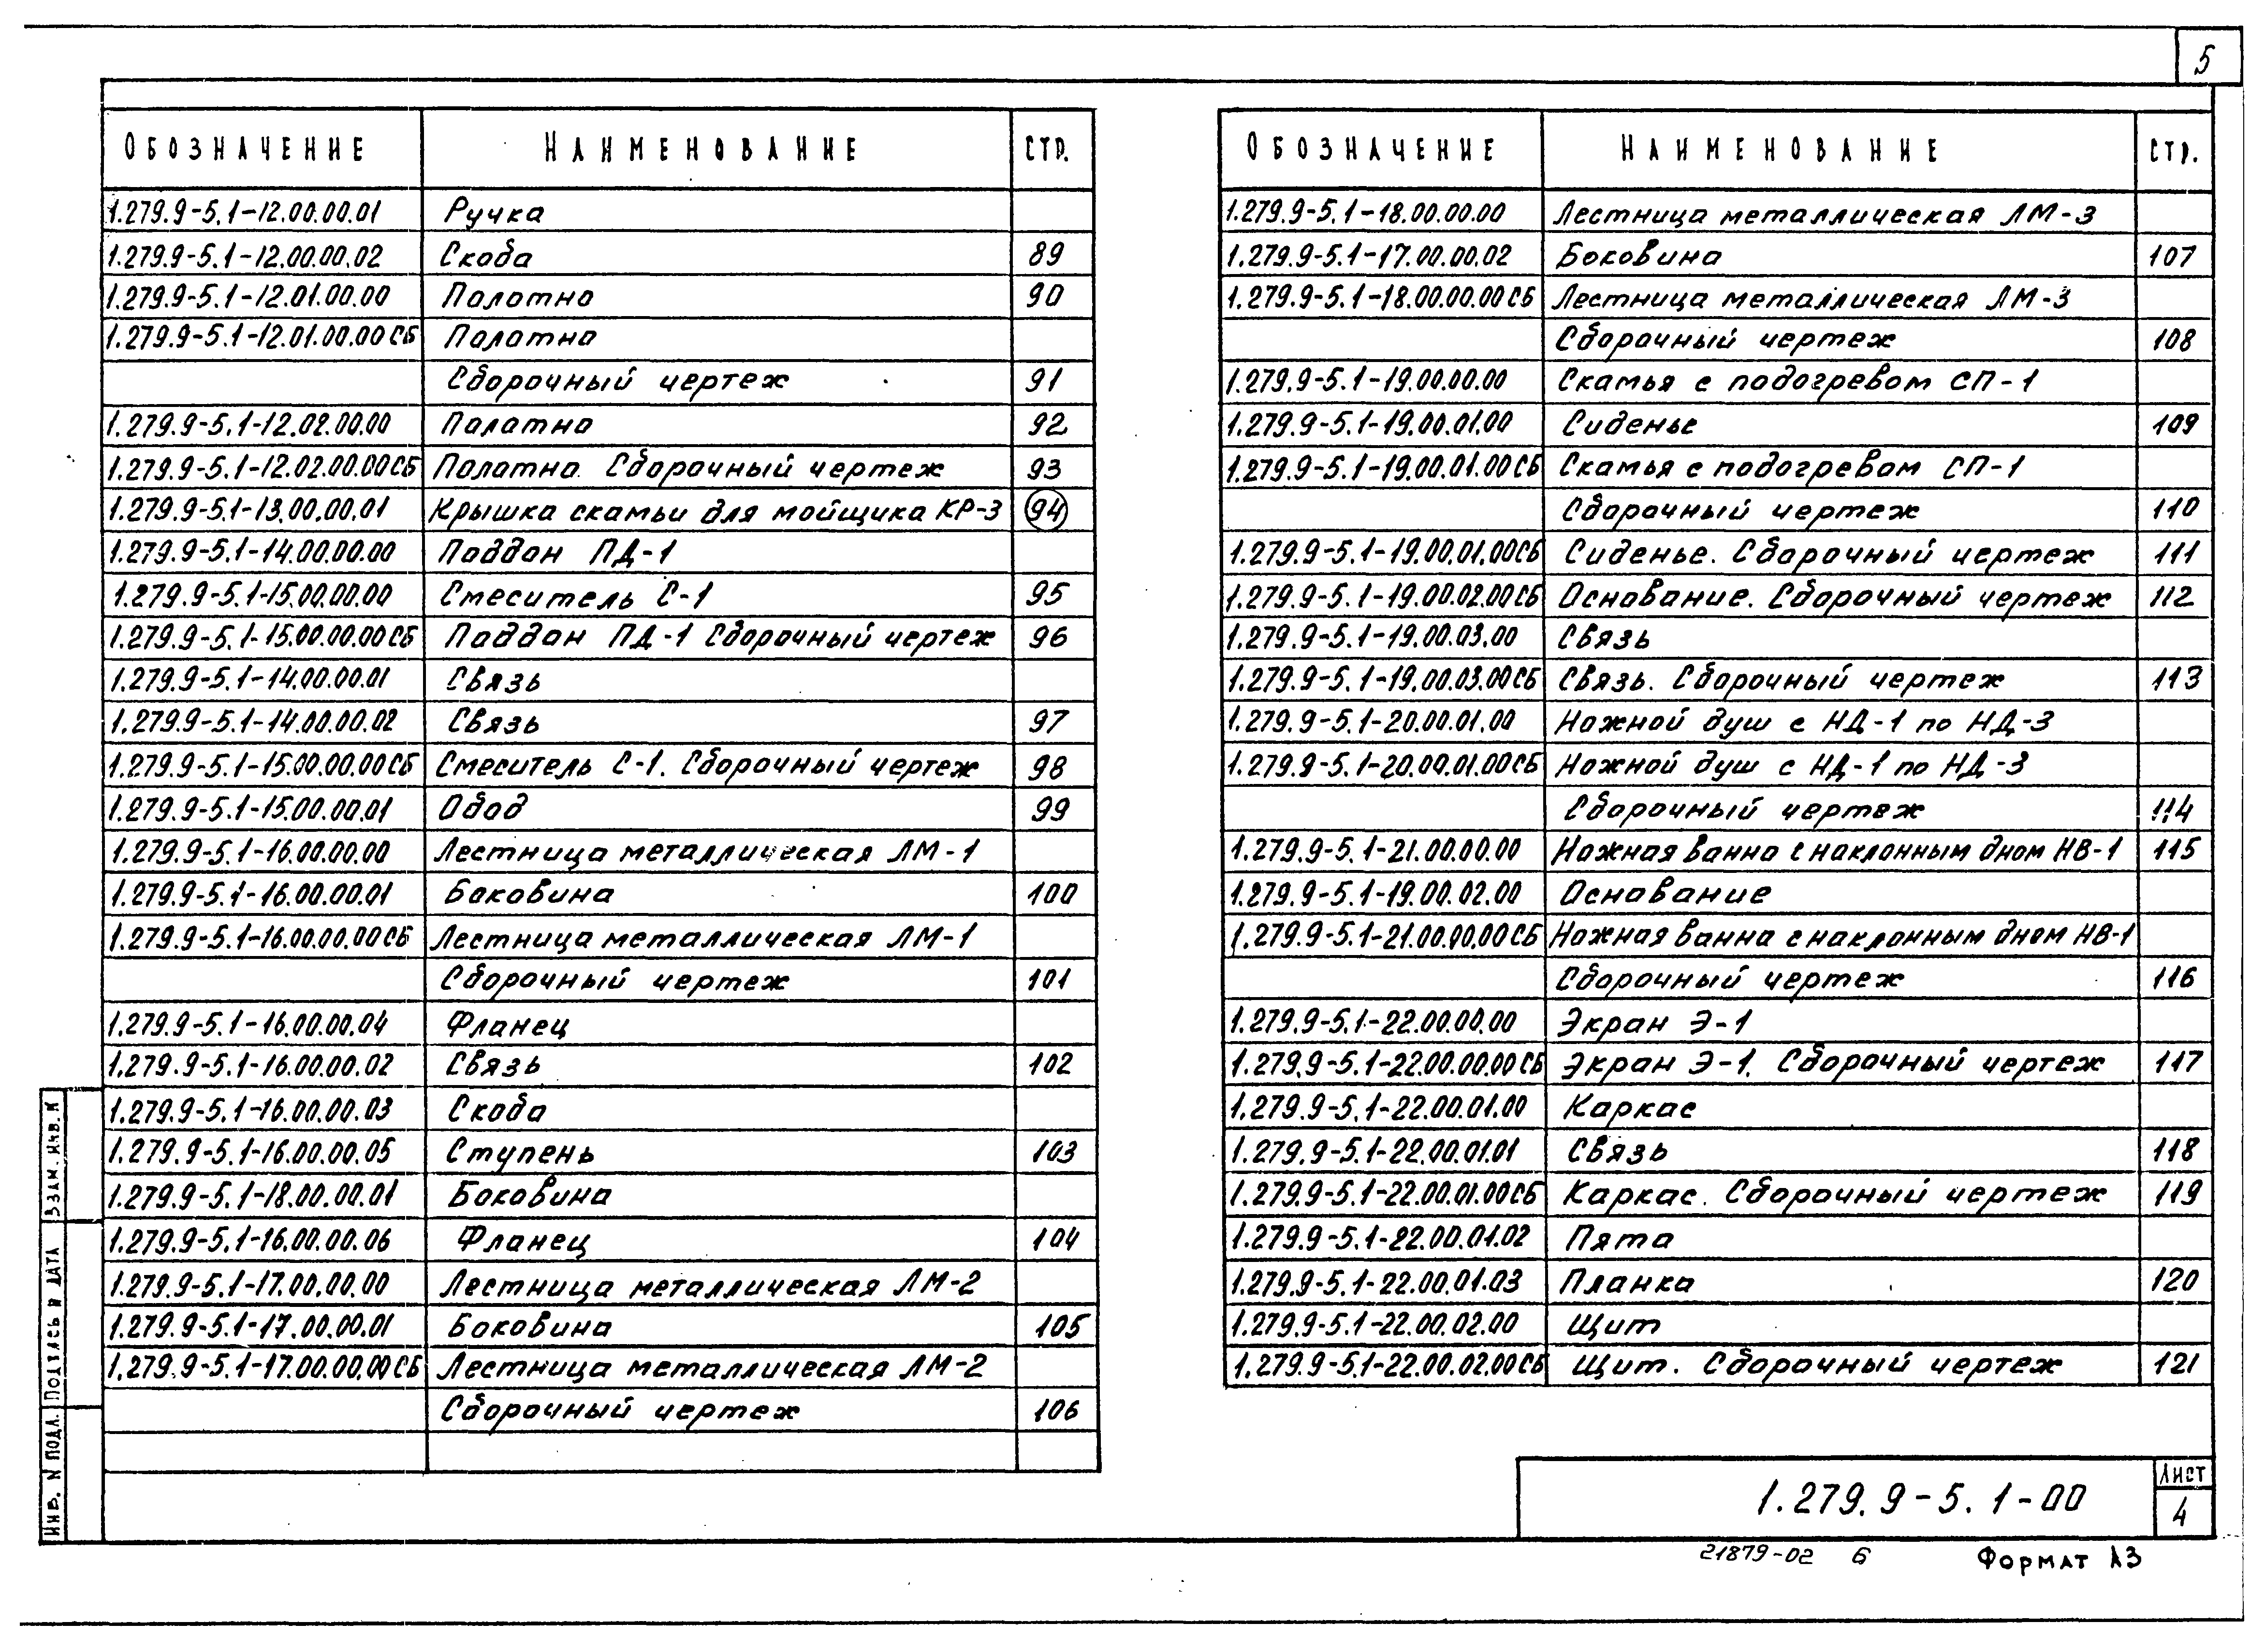 5
ОБОЗНАЧЕНИЕ НАИМЕНОВАНИЕ СТР.
1.279.9-5.1-12.00.00.01 Ручка
1.279.9-5.1-12.00.00.02 Скоба 89
1.279.9-5.1-12.01.00.00 Полотно 90
1.279.9-5.1-12.01.00.00СБ Полотно
Сборочный чертеж 91
1.279.9-5.1-12.02.00.00 Полотно 92
1.279.9-5.1-12.02.00.00СБ Полотно. Сборочный чертеж 93
1.279.9-5.1-13.00.00.01 Крышка скамьи для мойщика КР-3 94
1.279.9-5.1-14.00.00.00 Поддон ПД-1
1.279.9-5.1-15.00.00.00 Смеситель С-1 95
1.279.9-5.1-15.00.00.00СБ Поддон ПД-1 Сборочный чертеж 96
1.279.9-5.1-14.00.00.01 Связь
1.279.9-5.1-14.00.00.02 Связь 97
1.279.9-5.1-15.00.00.00СБ Смеситель С-1. Сборочный чертеж 98
1.279.9-5.1-15.00.00.01 Обод 99
1.279.9-5.1-16.00.00.00 Лестница металлическая ЛМ-1
1.279.9-5.1-16.00.00.01 Боковина 100
1.279.9-5.1-16.00.00.00СБ Лестница металлическая ЛМ-1
Сборочный чертеж 101
1.279.9-5.1-16.00.00.04 Фланец
1.279.9-5.1-16.00.00.02 Связь 102
1.279.9-5.1-16.00.00.03 Скоба
1.279.9-5.1-16.00.00.05 Ступень 103
1.279.9-5.1-18.00.00.01 Боковина
1.279.9-5.1-16.00.00.06 Фланец 104
1.279.9-5.1-17.00.00.00 Лестница металлическая ЛМ-2
1.279.9-5.1-17.00.00.01 Боковина 105
1.279.9-5.1-17.00.00.00СБ Лестница металлическая ЛМ-2
Сборочный чертеж 106
ОБОЗНАЧЕНИЕ НАИМЕНОВАНИЕ СТР.
1.279.9-5.1-18.00.00.00 Лестница металлическая ЛМ-3
1.279.9-5.1-17.00.00.02 Боковина 107
1.279.9-5.1-18.00.00.00СБ Лестница металлическая ЛМ-3
Сборочный чертеж 108
1.279.9-5.1-19.00.00.00 Скамья с подогревом СП-1
1.279.9-5.1-19.00.01.00 Сиденье 109
1.279.9-5.1-19.00.01.00СБ Скамья с подогревом СП-1
Сборочный чертеж 110
1.279.9-5.1-19.00.01.00СБ Сиденье. Сборочный чертеж 111
1.279.9-5.1-19.00.02.00СБ Основание. Сборочный чертеж 112
1.279.9-5.1-19.00.03.00 Связь
1.279.9-5.1-19.00.03.00СБ Связь. Сборочный чертеж 113
1.279.9-5.1-20.00.01.00 Ножной душ с НД-1 по НД-3
1.279.9-5.1-20.00.01.00СБ Ножной душ с НД-1 по НД-3
Сборочный чертеж 114
1.279.9-5.1-21.00.00.00 Ножная ванна с наклонным дном НВ-1 115
1.279.9-5.1-19.00.02.00 Основание
1.279.9-5.1-21.00.00.00СБ Ножная ванна с наклонным дном НВ-1
Сборочный чертеж 116
1.279.9-5.1-22.00.00.00 Экран Э-1
1.279.9-5.1-22.00.00.00СБ Экран Э-1. Сборочный чертеж 117
1.279.9-5.1-22.00.01.00 Каркас
1.279.9-5.1-22.00.01.01 Связь 118
1.279.9-5.1-22.00.01.00СБ Каркас. Сборочный чертеж 119
1.279.9-5.1-22.00.01.02 Пята
1.279.9-5.1-22.00.01.03 Планка 120
1.279.9-5.1-22.00.02.00 Щит
1.279.9-5.1-22.00.02.00СБ Щит. Сборочный чертеж 121
ИНВ. N ПОДЛ. ПОДПИСЬ И ДАТА ВЗАМ. ИНВ. N
1.279.9-5.1-00
ЛИСТ
4
21879-02 6 ФОРМАТ А3